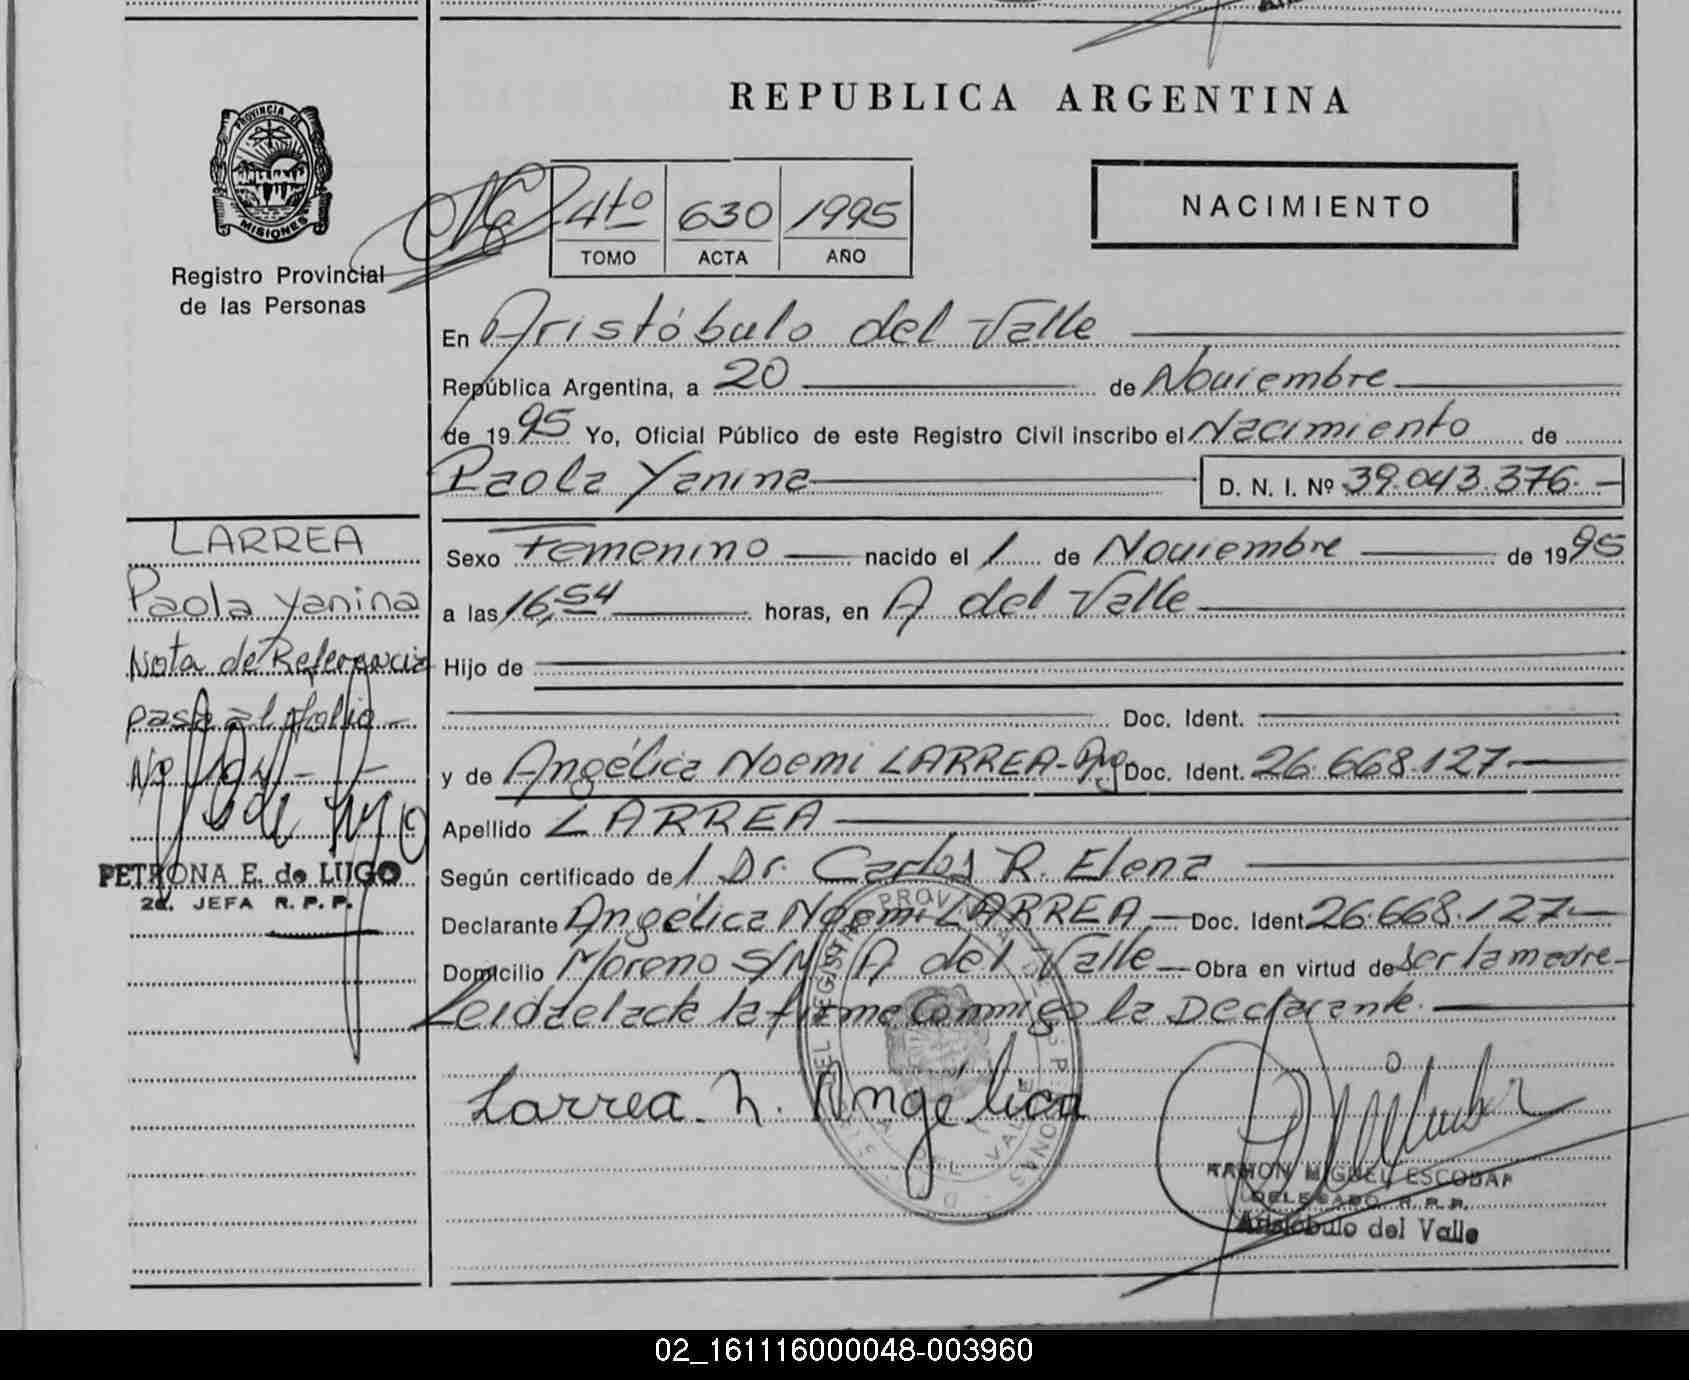 REPUBLICA ARGENTINA
PROVINCIA DE
MISIONES
Registro Provincial
de las Personas
4to 630 1995
TOMO ACTA AÑO
NACIMIENTO
En Aristóbulo del Valle
República Argentina, a 20 de Noviembre
de 1995 Yo, Oficial Público de este Registro Civil inscribo el Nacimiento de
Paola Yanina D. N. I. Nº 39.043.376.-
LARREA
Paola Yanina
Nota de Referencia
pasa al folio
Nº
PETRONA E. de LUGO
2a. JEFA R. P. P.
Sexo Femenino nacido el 1 de Noviembre de 1995
a las 16,54 horas, en A del Valle
Hijo de
Doc. Ident.
y de Angélica Noemi LARREA-Arg Doc. Ident. 26.668.127.-
Apellido LARREA
Según certificado de l Dr. Carlos R. Elena
Declarante Angélica Noemi LARREA - Doc. Ident. 26.668.127-
Domicilio Moreno S/N A del Valle - Obra en virtud de Ser la madre-
Leida el acta la firma Conmigo la Declarante.
Larrea. N. Angélica
RAMON MIGUEL ESCOBAR
DELEGADO R.P.P.
Aristóbulo del Valle
02_161116000048-003960